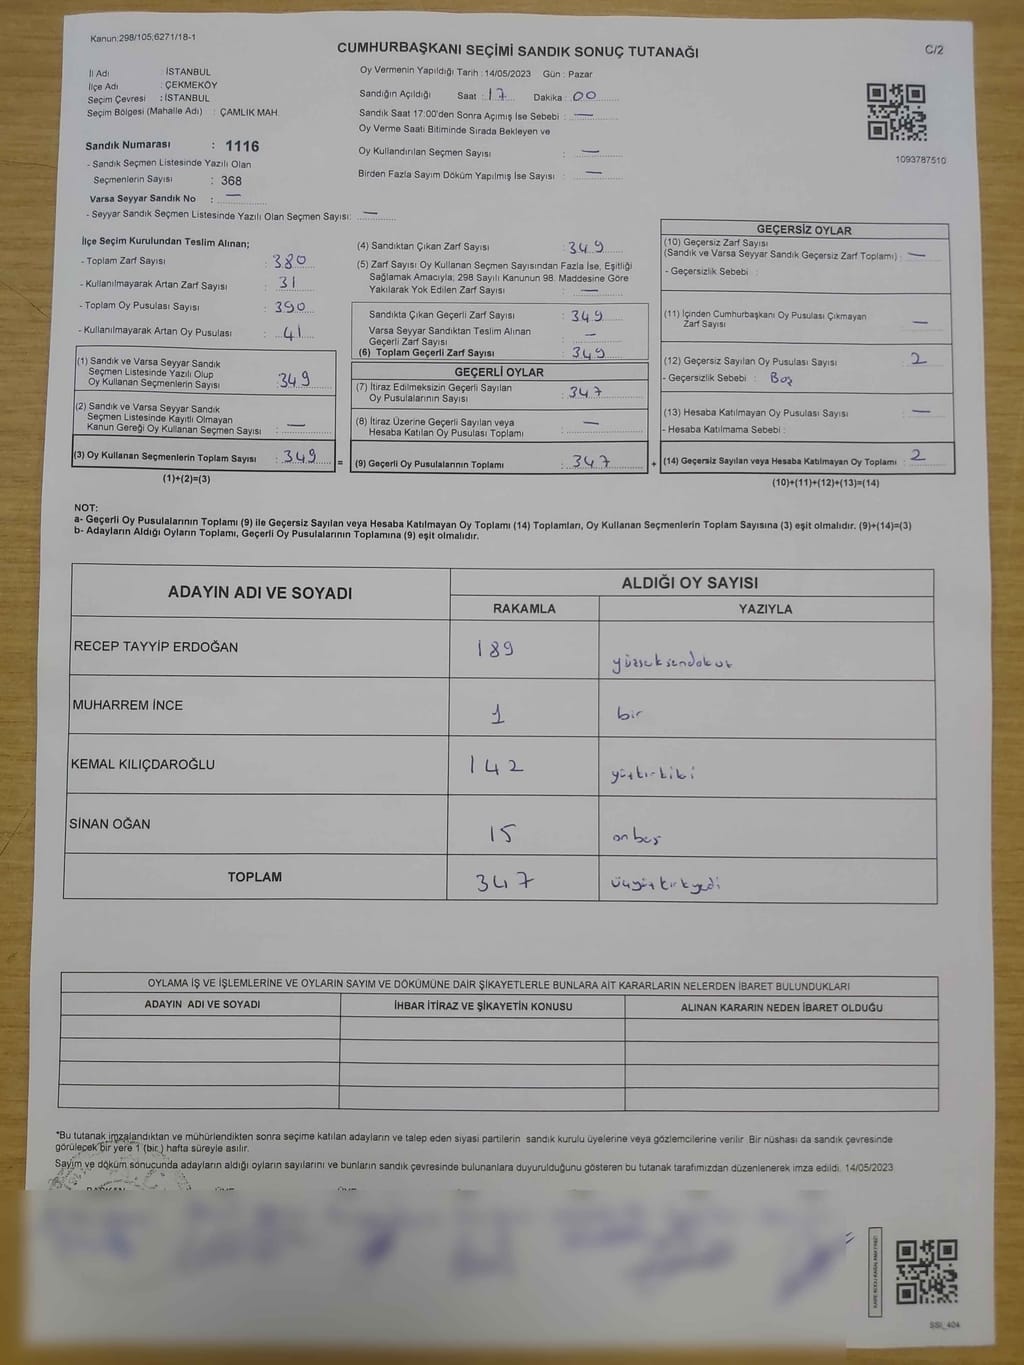 Kanun:298/105;6271/18-1
CUMHURBAŞKANI SEÇİMİ SANDIK SONUÇ TUTANAĞI
C/2
İl Adı : İSTANBUL
İlçe Adı : ÇEKMEKÖY
Seçim Çevresi : İSTANBUL
Seçim Bölgesi (Mahalle Adı) : ÇAMLIK MAH.
Sandık Numarası : 1116
- Sandık Seçmen Listesinde Yazılı Olan
Seçmenlerin Sayısı : 368
Varsa Seyyar Sandık No : —
- Seyyar Sandık Seçmen Listesinde Yazılı Olan Seçmen Sayısı: —
Oy Vermenin Yapıldığı Tarih : 14/05/2023 Gün : Pazar
Sandığın Açıldığı Saat : 17 Dakika : 00
Sandık Saat 17:00'den Sonra Açımış İse Sebebi : —
Oy Verme Saati Bitiminde Sırada Bekleyen ve
Oy Kullandırılan Seçmen Sayısı : —
Birden Fazla Sayım Döküm Yapılmış İse Sayısı : —
1093787510
İlçe Seçim Kurulundan Teslim Alınan;
- Toplam Zarf Sayısı : 380
- Kullanılmayarak Artan Zarf Sayısı : 31
- Toplam Oy Pusulası Sayısı : 390
- Kullanılmayarak Artan Oy Pusulası : 41
(1) Sandık ve Varsa Seyyar Sandık
Seçmen Listesinde Yazılı Olup
Oy Kullanan Seçmenlerin Sayısı : 349
(2) Sandık ve Varsa Seyyar Sandık
Seçmen Listesinde Kayıtlı Olmayan
Kanun Gereği Oy Kullanan Seçmen Sayısı : —
(3) Oy Kullanan Seçmenlerin Toplam Sayısı : 349 =
(1)+(2)=(3)
(4) Sandıktan Çıkan Zarf Sayısı : 349
(5) Zarf Sayısı Oy Kullanan Seçmen Sayısından Fazla İse, Eşitliği
Sağlamak Amacıyla; 298 Sayılı Kanunun 98. Maddesine Göre
Yakılarak Yok Edilen Zarf Sayısı : —
Sandıkta Çıkan Geçerli Zarf Sayısı : 349
Varsa Seyyar Sandıktan Teslim Alınan
Geçerli Zarf Sayısı : —
(6) Toplam Geçerli Zarf Sayısı : 349
GEÇERLİ OYLAR
(7) İtiraz Edilmeksizin Geçerli Sayılan
Oy Pusulalarının Sayısı : 347
(8) İtiraz Üzerine Geçerli Sayılan veya
Hesaba Katılan Oy Pusulası Toplamı : —
(9) Geçerli Oy Pusulalarının Toplamı : 347 +
GEÇERSİZ OYLAR
(10) Geçersiz Zarf Sayısı
(Sandık ve Varsa Seyyar Sandık Geçersiz Zarf Toplamı) : —
- Geçersizlik Sebebi :
(11) İçinden Cumhurbaşkanı Oy Pusulası Çıkmayan
Zarf Sayısı : —
(12) Geçersiz Sayılan Oy Pusulası Sayısı : 2
- Geçersizlik Sebebi : Boş
(13) Hesaba Katılmayan Oy Pusulası Sayısı : —
- Hesaba Katılmama Sebebi :
(14) Geçersiz Sayılan veya Hesaba Katılmayan Oy Toplamı : 2
(10)+(11)+(12)+(13)=(14)
NOT:
a- Geçerli Oy Pusulalarının Toplamı (9) ile Geçersiz Sayılan veya Hesaba Katılmayan Oy Toplamı (14) Toplamları, Oy Kullanan Seçmenlerin Toplam Sayısına (3) eşit olmalıdır. (9)+(14)=(3)
b- Adayların Aldığı Oyların Toplamı, Geçerli Oy Pusulalarının Toplamına (9) eşit olmalıdır.
ADAYIN ADI VE SOYADI
ALDIĞI OY SAYISI
RAKAMLA YAZIYLA
RECEP TAYYİP ERDOĞAN 189 yüzseksendokuz
MUHARREM İNCE 1 bir
KEMAL KILIÇDAROĞLU 142 yüzkırkiki
SİNAN OĞAN 15 onbeş
TOPLAM 347 üçyüzkırkyedi
OYLAMA İŞ VE İŞLEMLERİNE VE OYLARIN SAYIM VE DÖKÜMÜNE DAİR ŞİKAYETLERLE BUNLARA AİT KARARLARIN NELERDEN İBARET BULUNDUKLARI
ADAYIN ADI VE SOYADI İHBAR İTİRAZ VE ŞİKAYETİN KONUSU ALINAN KARARIN NEDEN İBARET OLDUĞU
*Bu tutanak imzalandıktan ve mühürlendikten sonra seçime katılan adayların ve talep eden siyasi partilerin sandık kurulu üyelerine veya gözlemcilerine verilir. Bir nüshası da sandık çevresinde
görülecek bir yere 1 (bir) hafta süreyle asılır.
Sayım ve döküm sonucunda adayların aldığı oyların sayılarını ve bunların sandık çevresinde bulunanlara duyurulduğunu gösteren bu tutanak tarafımızdan düzenlenerek imza edildi. 14/05/2023
SSI_404